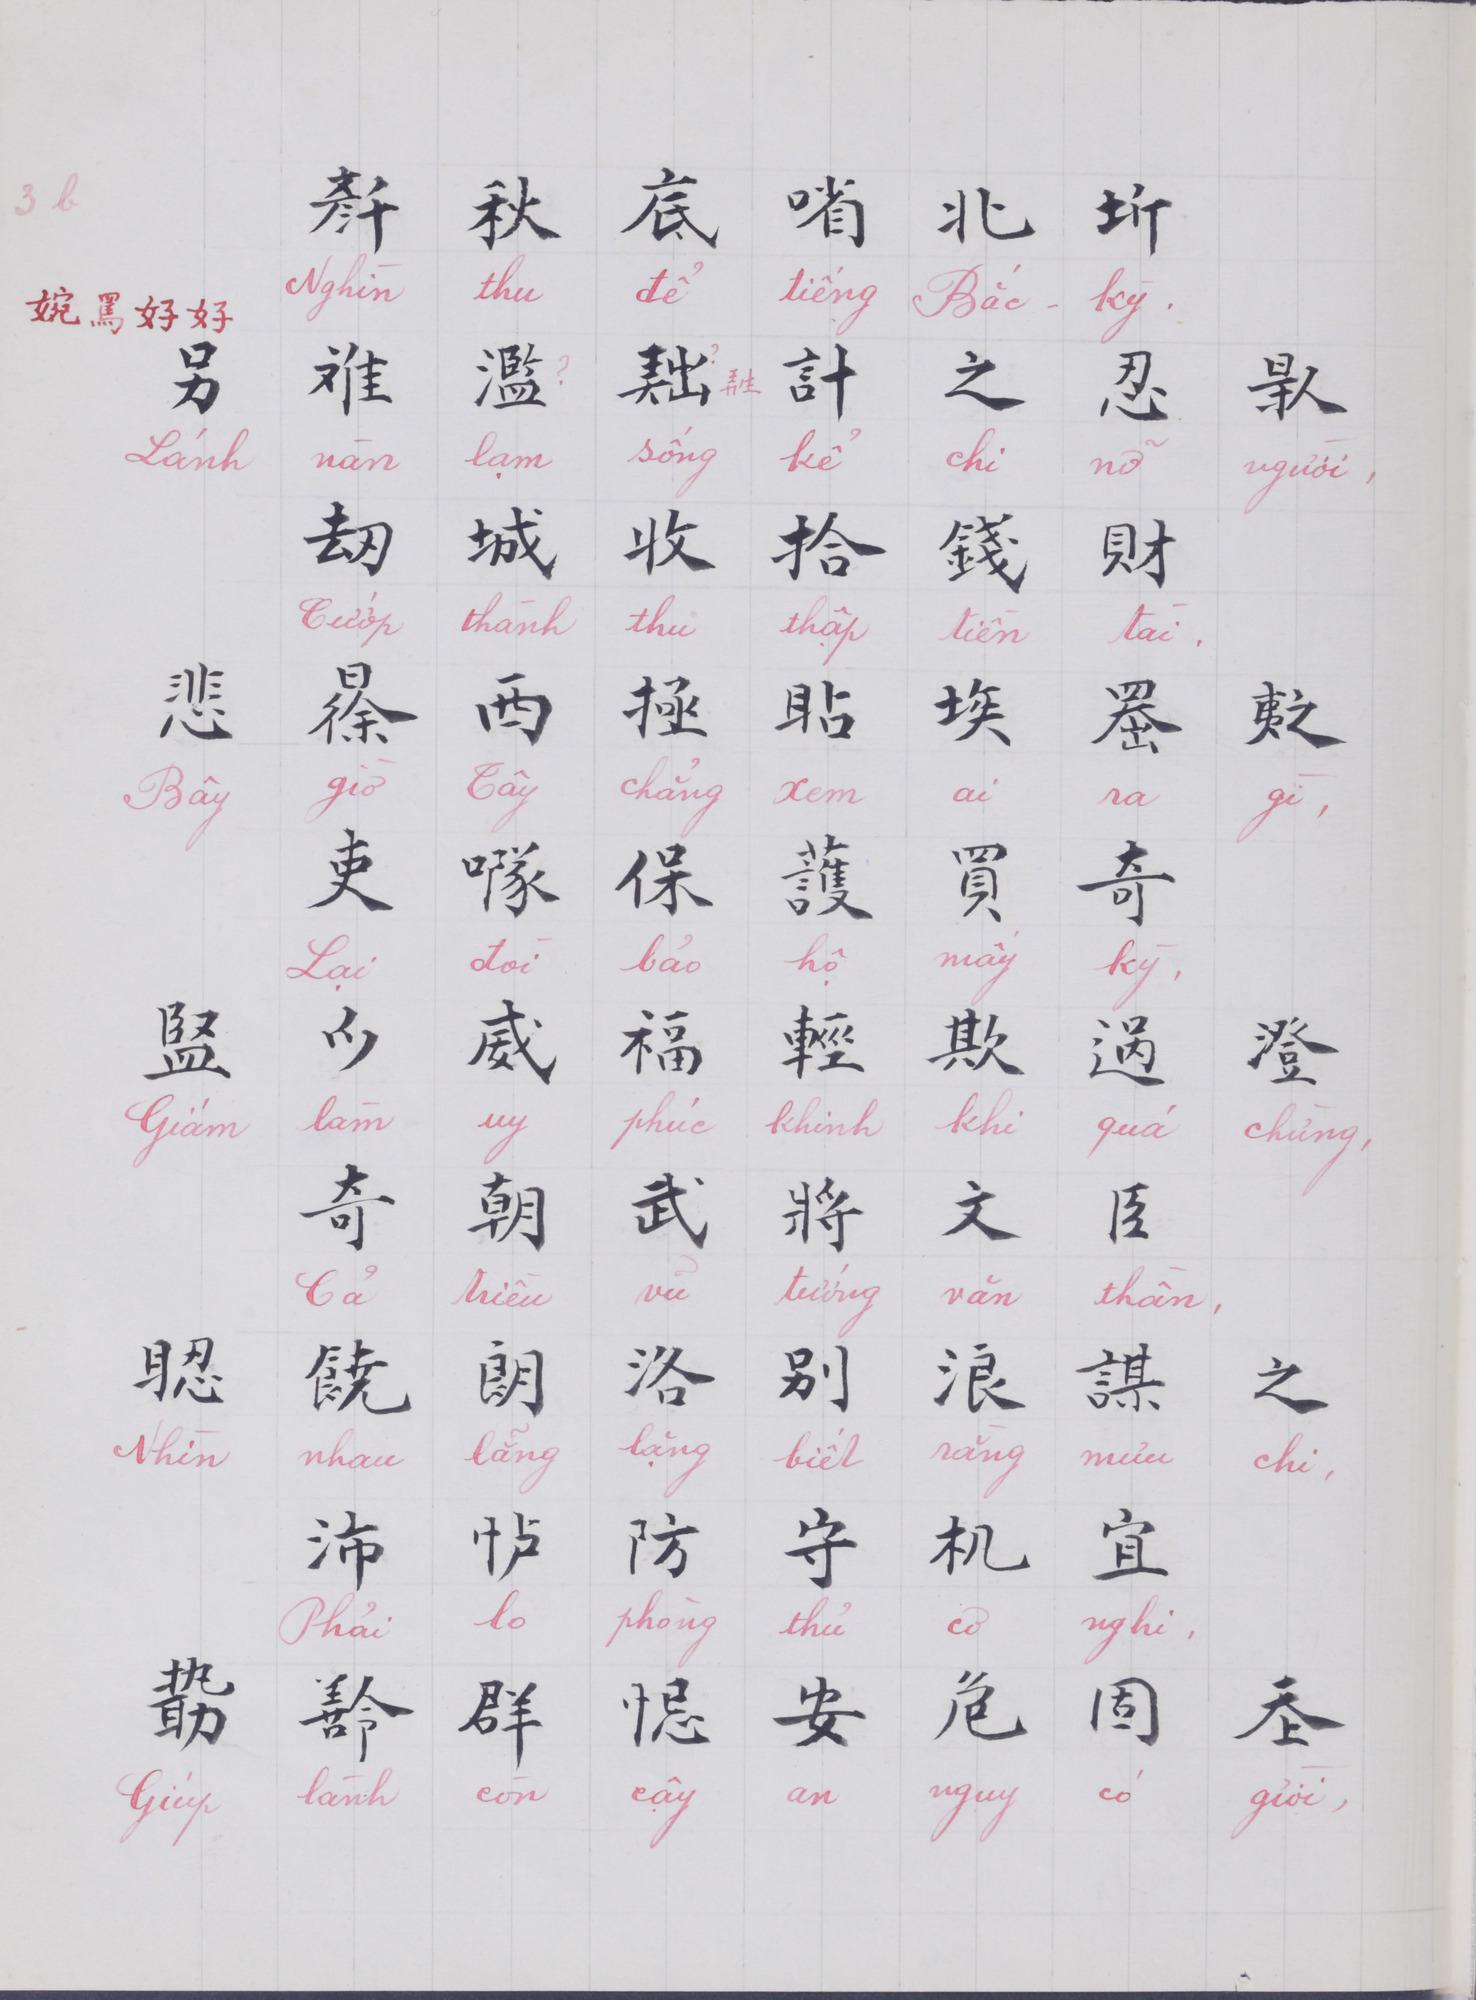 3 b
秋底㗂北圻
Nghìn thu để tiếng Bắc - kỳ.
婉罵好好
另难濫?計之忍𠊛
Lánh nàn lạm sống kể chi nỡ người,
刧城收拾錢財
Cướp thành thu thập tiền tài.
悲𣇞西拯貼埃𦋦
Bây giờ Tây chẳng xem ai ra gì,
吏㘨保護買奇
Lại đòi bảo hộ mấy kỳ,
監𫜵威福輕欺過澄
Giám làm uy phúc khinh khi quá chừng,
奇朝武將文臣
Cả triều vũ tướng văn thần,
饒朗洛別浪謀之
Nhìn nhau lẵng lặng biết rằng mưu chi,
沛㤝防守机宜
Phải lo phòng thủ cơ nghi,
群安危固𡗶
Giúp lành còn cậy an nguy có giời,